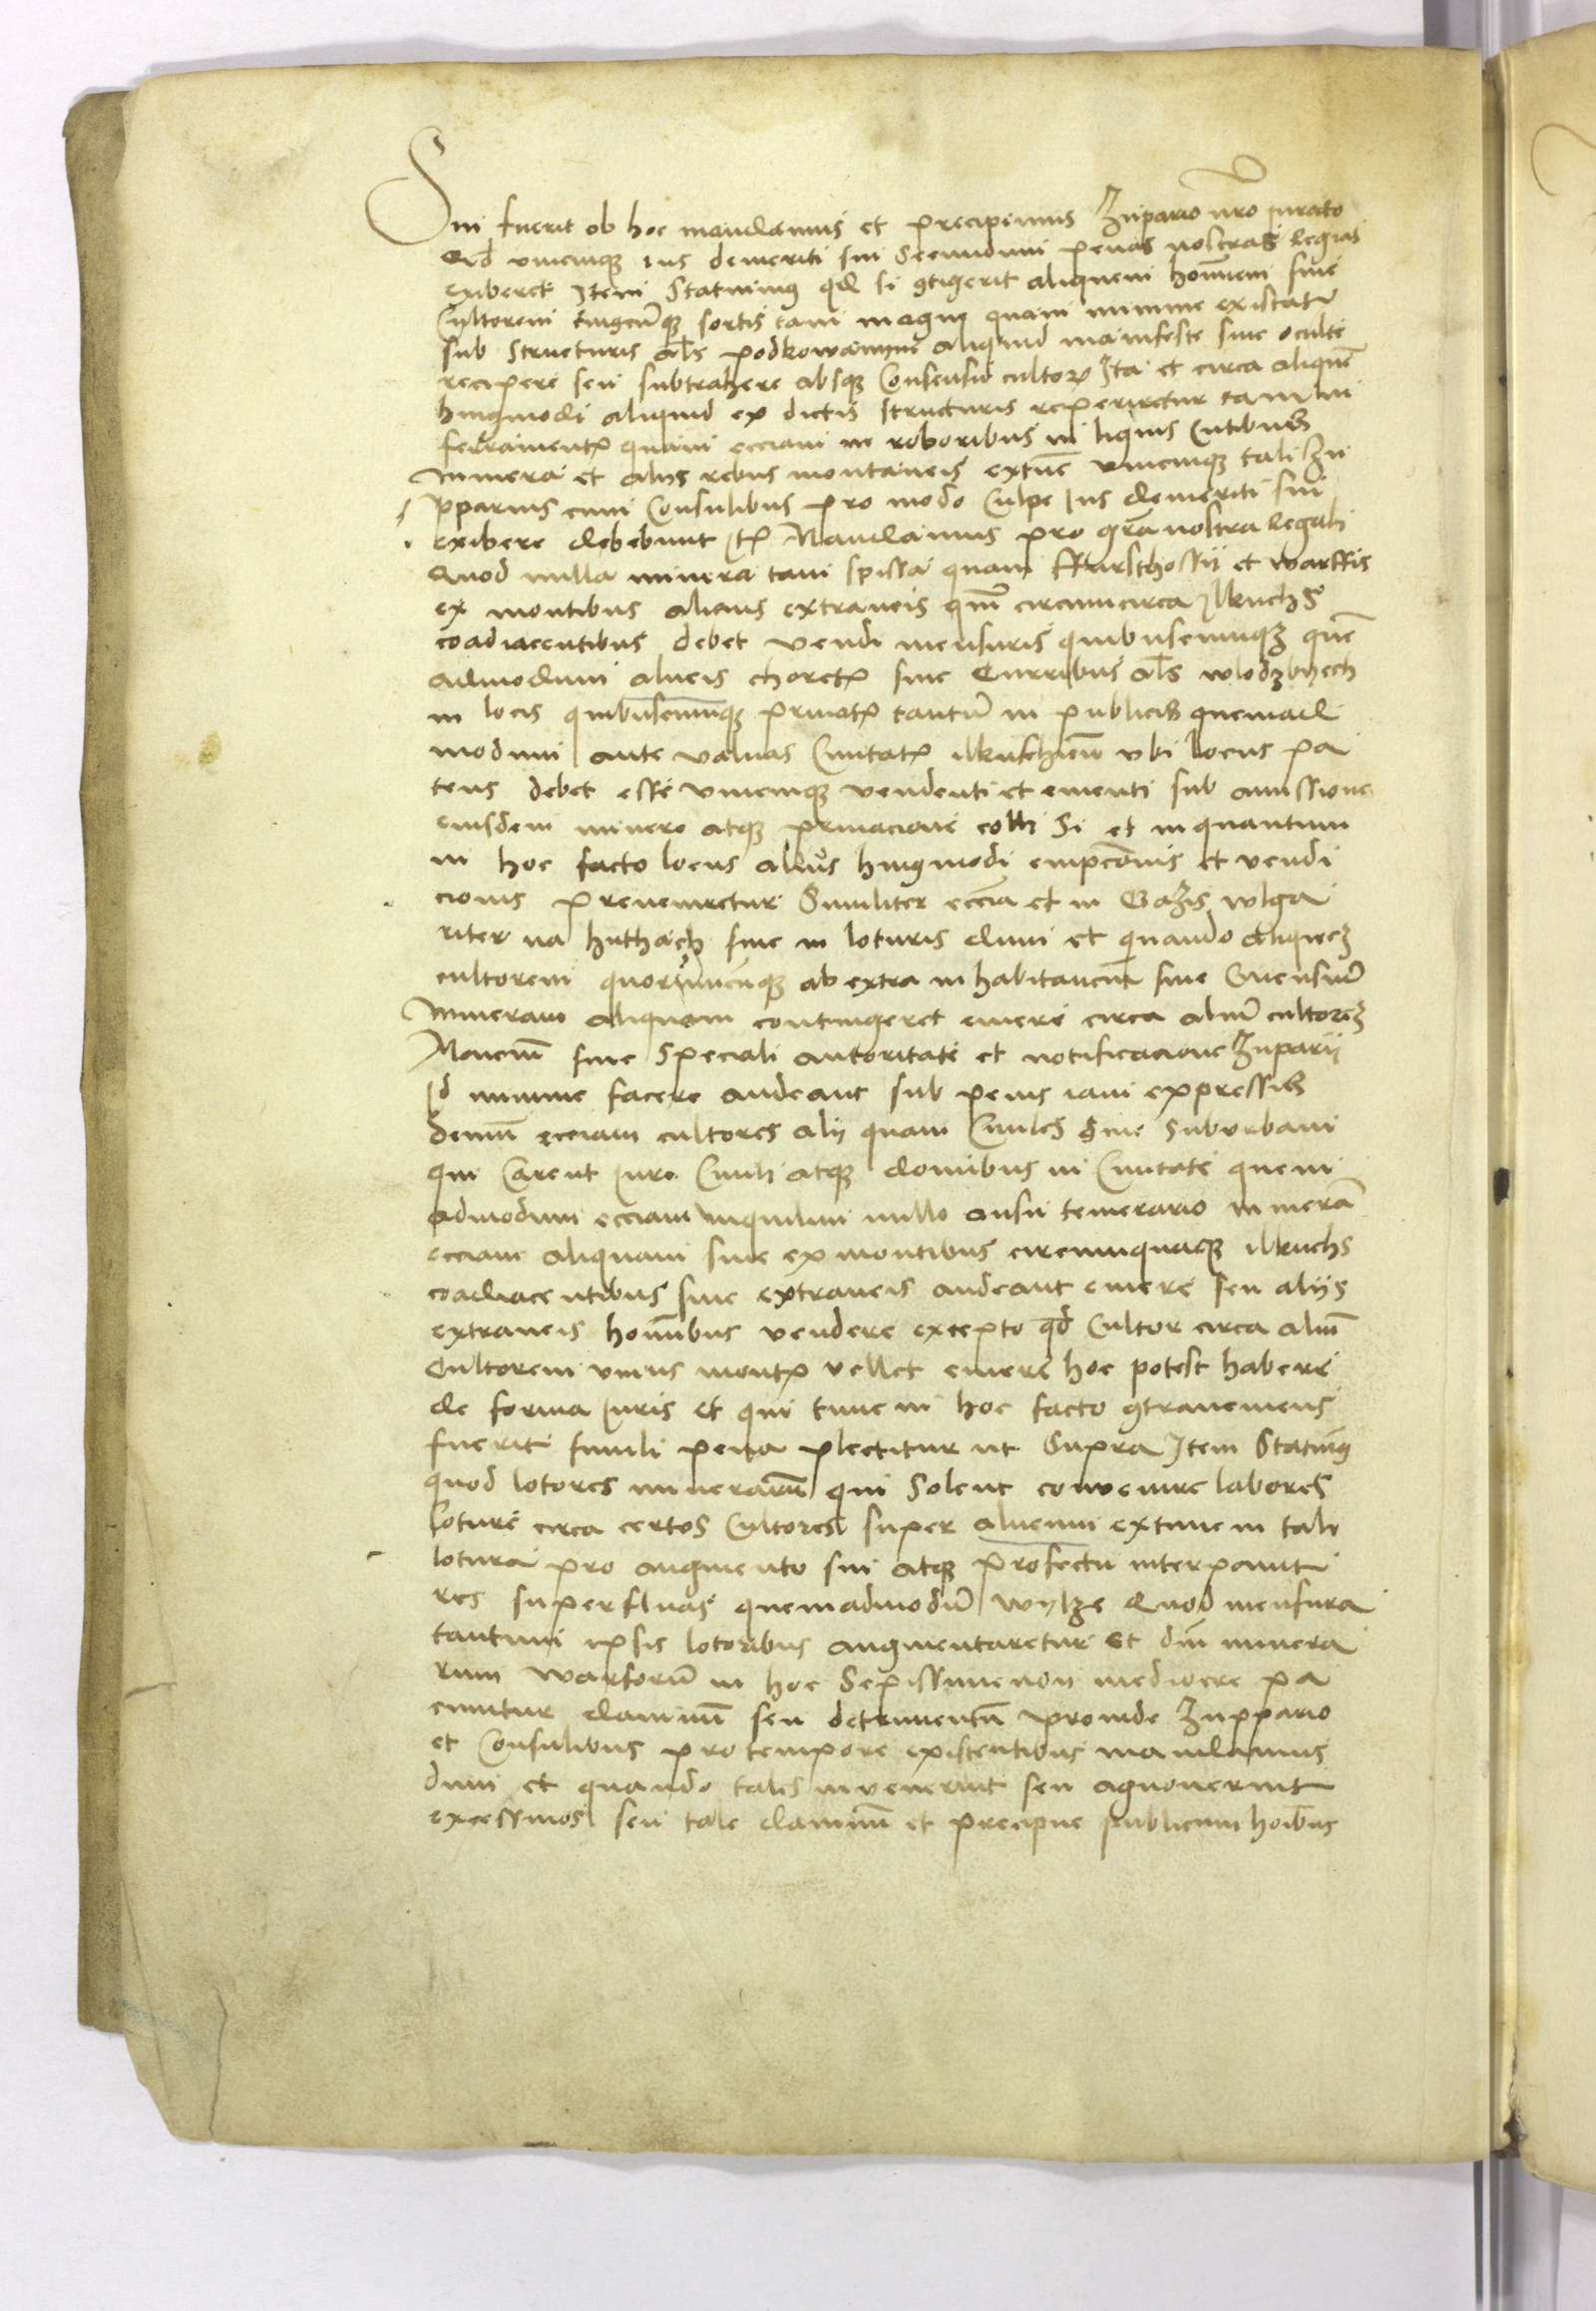 Sui fuerit ob hoc mandamus et precipimus Zupario nro iurato
Qd vnicuiq ius demeriti sui secundum penas nostras regias
exiberet Item Statuimus qd si gtigerit aliquem hominem siue
Cultorem cuiuscunq sortis tam magne quam minime existat
sub structuris als podkowamyne aliquid manifeste siue oculte
recipere seu subtrahere absq consensu cultorum Ita et circa aliquem
huiusmodi aliquid ex dictis structuris reperiretur tam in
ferramentis quam ecciam in roboribus in lignis Cutibus
minera et alijs rebus montaneis extunc vnicuiq tali Zu
pparius cum Consulibus pro modo Culpe Ius demeriti sui
exibere debebunt Itm Mandamus pro gra nostra regali
Quod nulla minera tam spissa quam kursthossij et warffis
ex montibus alienis extraneis qm circumcirca Ilkuchs
coadiacentibus debet vendi mensuris quibuscumqz quem
admodum alueis choretis siue Curribus als wlodzbyech
in locis quibuscumqz priuatis tantum in publicis quemad
modum ante valuas Ciuitatis ilkuschiensem vbi locus pa
tens debet esse vnicuiq vendenti et ementi sub amissione
eiusdem minere atq priuacione colli Si et inquantum
in hoc facto locus alius huiusmodi empcionis et vendi
cionis preueniretur Similiter ecciam et in Gazis wlga
riter na huthach siue in loturis dum et quando aliquez
cultorem quorumcunq ab extra inhabitancium siue Ciuensium
Mineram aliquam contingeret emere circa alium cultorez
Moncium sine speciali autoritate et notificacione Zuparij
Id minime facere audeant sub penis iam expressis
Demum ecciam cultores alij quam Ciuiles siue suburbani
qui Carent iure Ciuili atq domibus in Ciuitate quem
admodum ecciam inquilini nullo ausu temerario mineram
ecciam aliquam siue ex montibus circumquaq ilkuchs
coadiacentibus siue extraneis audeant emere seu alijs
extraneis hominibus vendere excepto qd Cultor circa alium
Cultorem vnius montis vellet emere hoc potest habere
de forma iuris et qui tunc in hoc facto gtraueniens
fuerit simili pena plectitur ut Supra Item Statuimus
quod lotores minerarum qui solent conuenire labores
loture circa certos Cultores super alueum extunc in tali
lotura pro augmento sui atq profectu interponunt
res superfluas quemadmodum wylze Quod mensura
tantum ipsis lotoribus augmentaretur Et dni minera
rum warforum in hoc Sepissime non mediocre pa
ciuntur damnum seu detrimentum proinde Zuppario
et Consulibus pro tempore existentibus mandamus
dum et quando tales inuenerint seu agnouerint
excessiuos seu tale damnum et precipue publicum hoibus